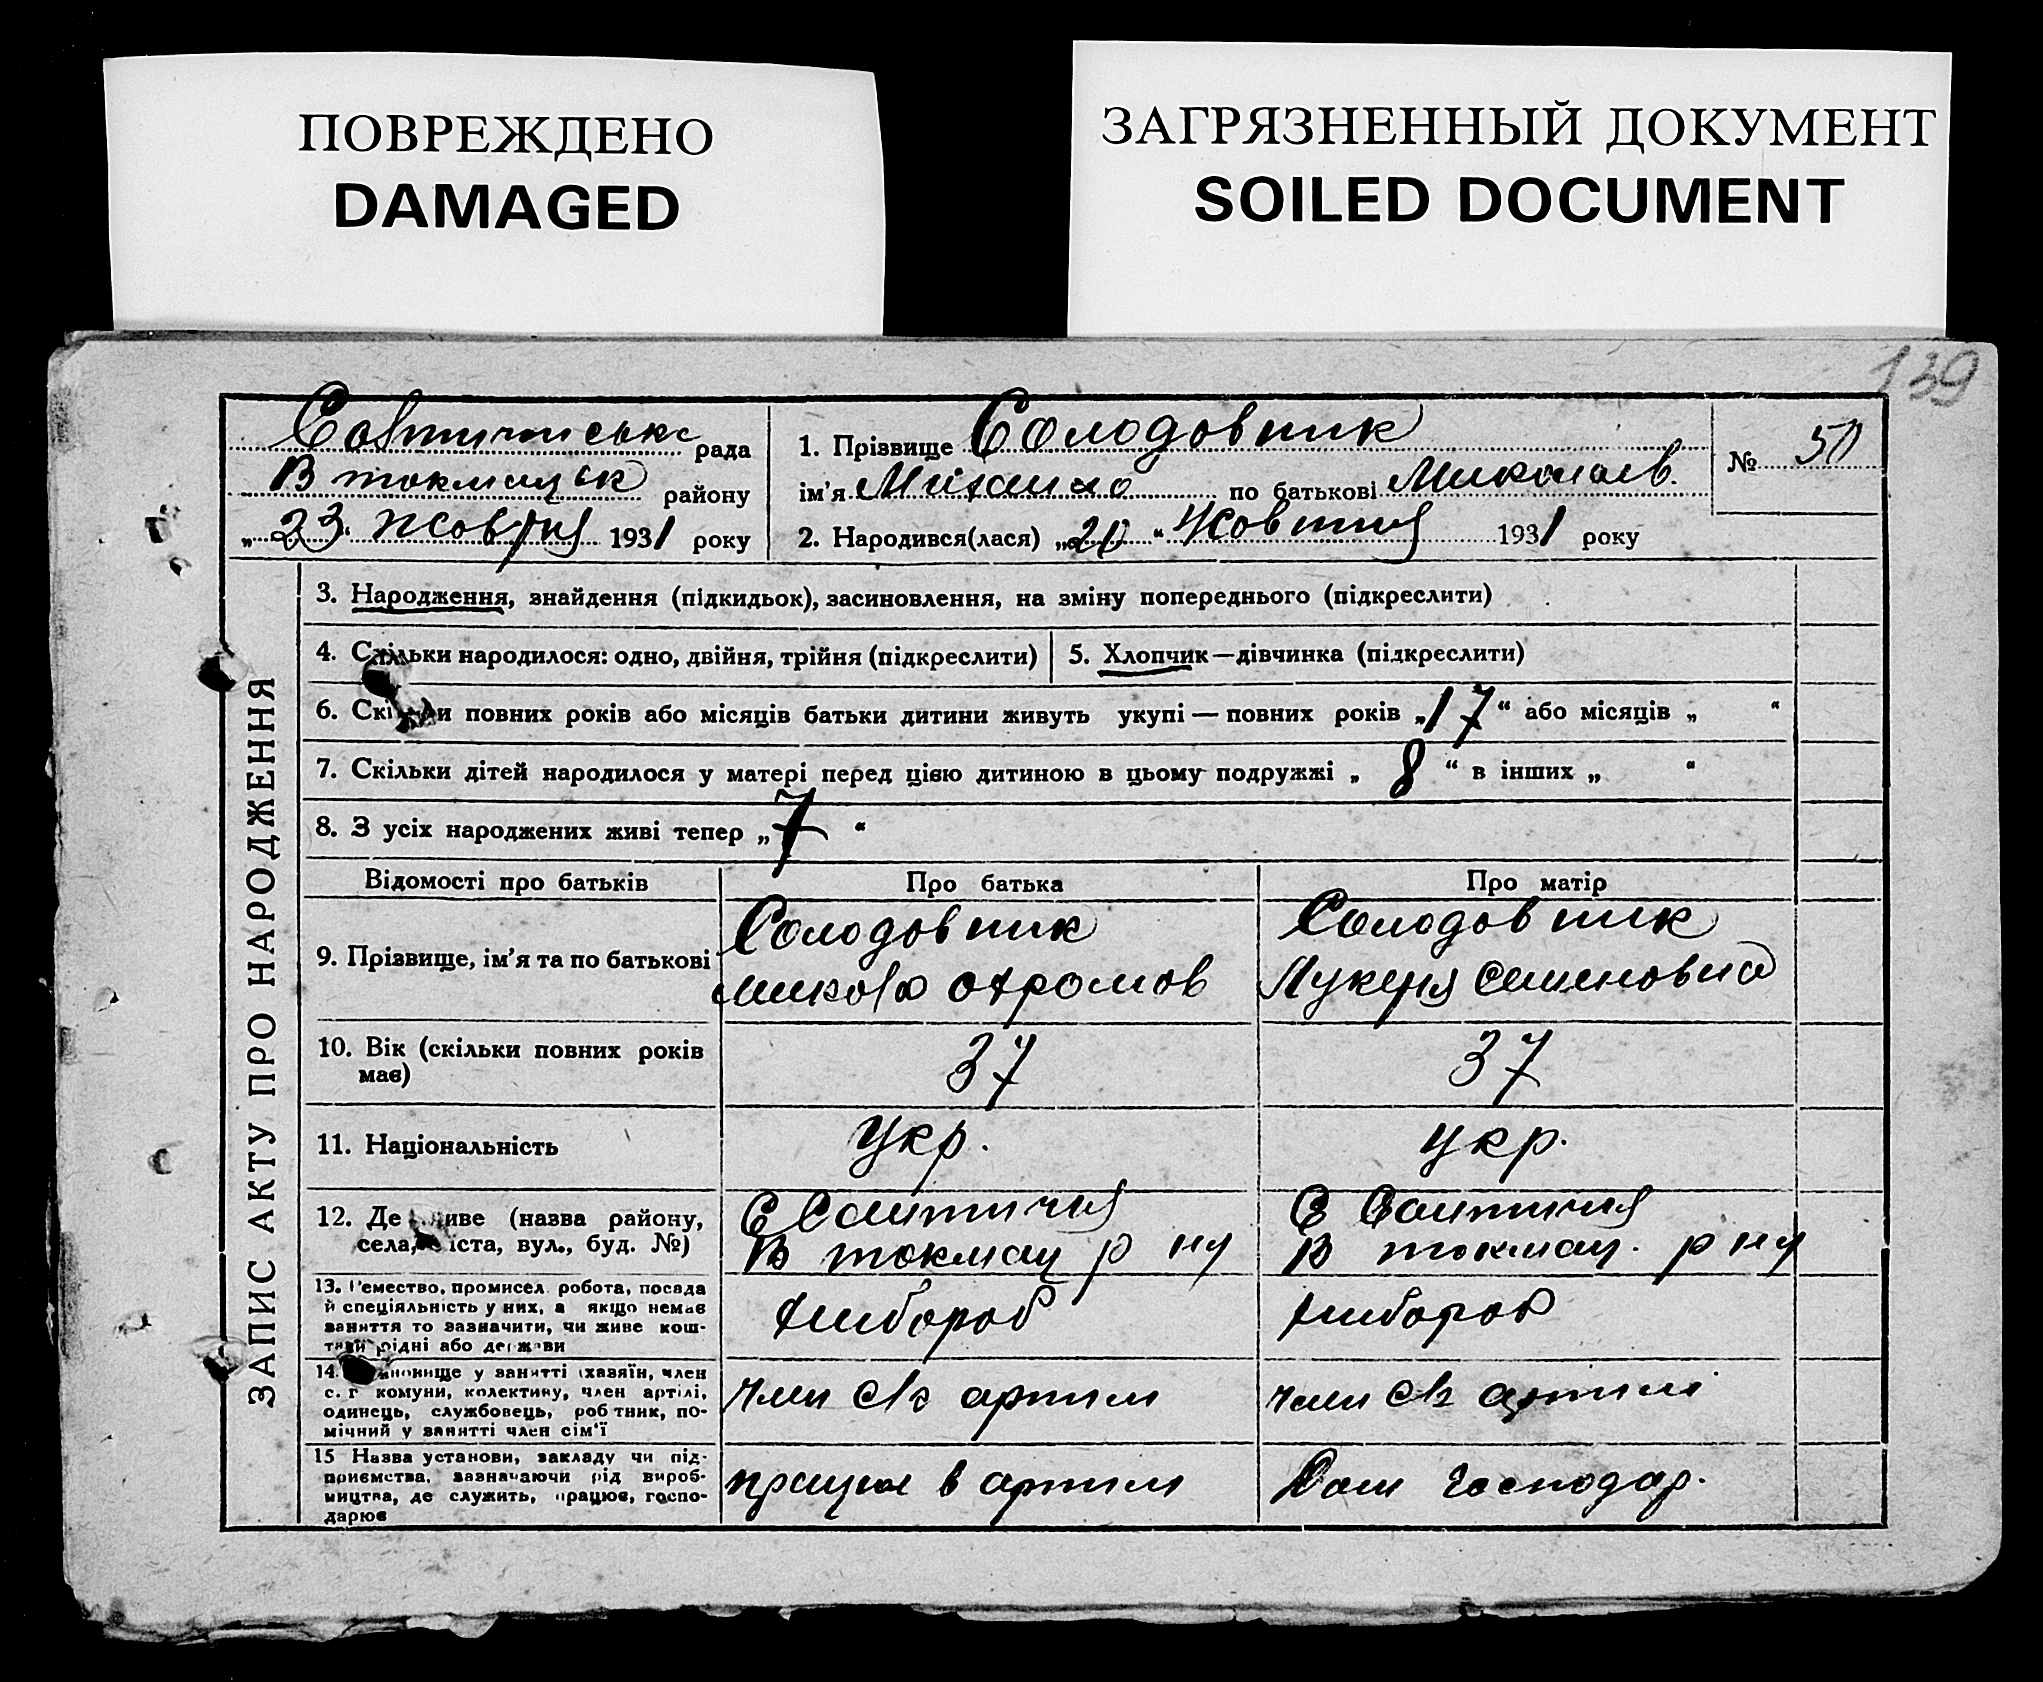 ПОВРЕЖДЕНО
DAMAGED
ЗАГРЯЗНЕННЫЙ ДОКУМЕНТ
SOILED DOCUMENT
139
рада
В токмацьк району
„23“ жовтня 1931 року
1. Прізвище Солодовник
ім'я Михайло по батькові Миколаєв.
2. Народився(лася) „20“ Жовтня 1931 року
№ 50
ЗАПИС АКТУ ПРО НАРОДЖЕННЯ
3. Народження, знайдення (підкидьок), засиновлення, на зміну попереднього (підкреслити)
4. Скільки народилося: одно, двійня, трійня (підкреслити)
5. Хлопчик—дівчинка (підкреслити)
6. Скільки повних років або місяців батьки дитини живуть укупі — повних років „17“ або місяців „ “
7. Скільки дітей народилося у матері перед цією дитиною в цьому подружжі „8“ в інших „ “
8. З усіх народжених живі тепер „7“
Відомості про батьків
Про батька
Про матір
9. Прізвище, ім'я та по батькові
Солодовник
Микола охромов
Солодовник
Лукеря Семеновна
10. Вік (скільки повних років
має)
37
37
11. Національність
Укр.
укр.
12. Де живе (назва району,
села, міста, вул., буд. №)
В токмац р ну
В токмац. р ну
13. Ремество, промисел, робота, посада
й спеціяльність у них, а якщо немає
заняття то зазначити, чи живе кош-
тами рідні або держави
хлібороб
хлібороб
14. Становище у занятті (хазяїн, член
с. г комуни, колективу, член артілі,
одинець, службовець, робітник, по-
мічний у занятті член сім'ї
член с/г артілі
член с/г артілі
15 Назва установи, закладу чи під-
приємства, зазначаючи рід вироб-
ництва, де служить, працює, госпо-
дарює
працює в артілі
Дом господар.